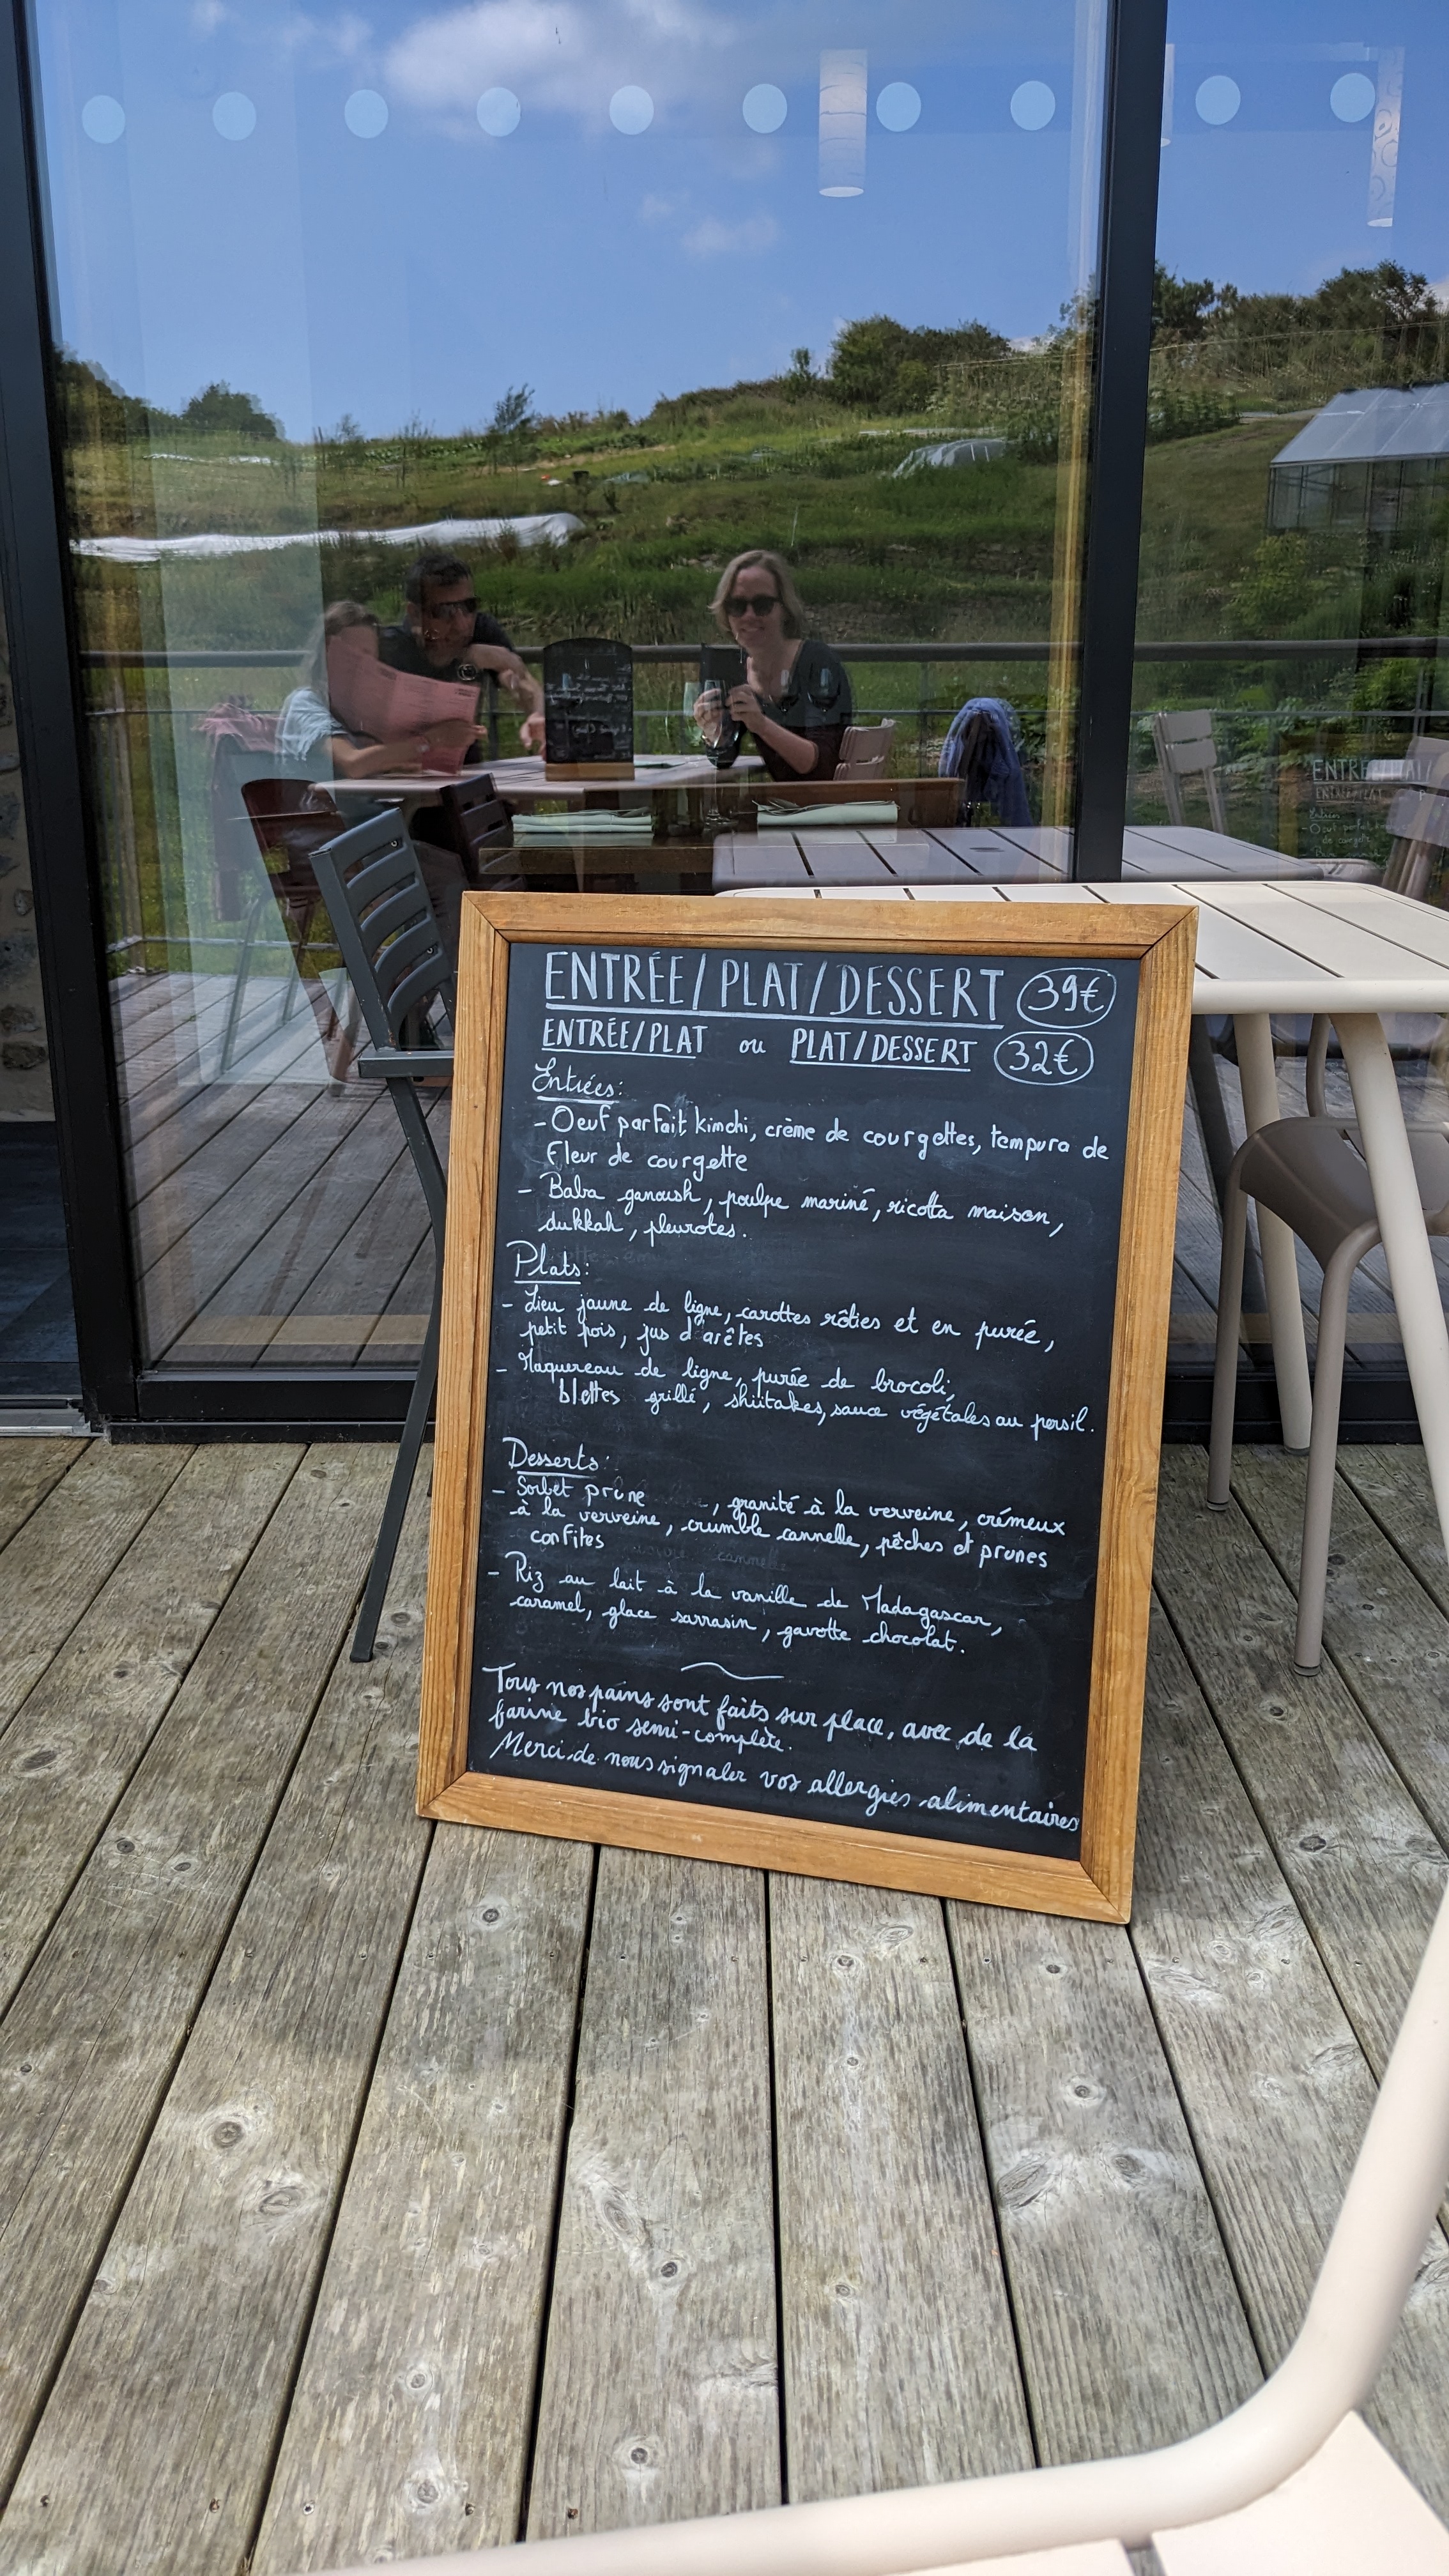 ENTRÉE/PLAT/DESSERT 39€
ENTRÉE/PLAT ou PLAT/DESSERT 32€
Entrées:
- Oeuf parfait, kimchi, crème de courgettes, tempura de
fleur de courgette
- Baba ganoush, poulpe mariné, ricotta maison,
dukkah, pleurotes.
Plats:
- Lieu jaune de ligne, carottes rôties et en purée,
petit pois, jus d'arêtes
- Maquereau de ligne, purée de brocoli,
blettes grillé, shiitakes, sauce végétales au persil.
Desserts:
- Sorbet prune, granité à la verveine, crémeux
à la verveine, crumble cannelle, pêches et prunes
confites
- Riz au lait à la vanille de Madagascar,
caramel, glace sarrasin, gavotte chocolat.
Tous nos pains sont faits sur place, avec de la
farine bio semi-complète.
Merci de nous signaler vos allergies alimentaires